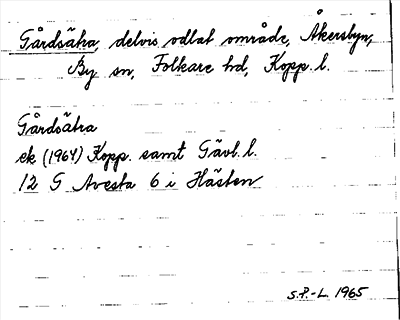 Gårdsätra, delvis odlat område, Åkersbyn,
By sn, Folkare hd, Kopp. l.
Gårdsätra
ek (1964) Kopp. samt Gävl. l.
12 G Avesta 6 i Hästen
S.P.-L. 1965